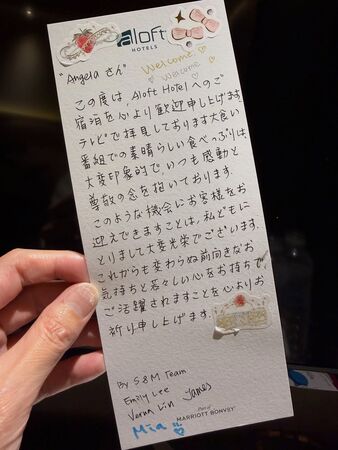 aloft
HOTELS
Welcome!
Welcome
"Angela さん"
この度は、Aloft Hotelへのご
宿泊を心より歓迎申し上げます。
テレビで拝見しております大食い
番組での素晴らしい食べっぷりは、
大変印象的で、いつも感動と
尊敬の念を抱いております。
このような機会にお客様をお
迎えできますことは、私どもに
とりまして大変光栄でございます。
これからも変わらぬ前向きなお
気持ちと若々しい心をお持ちで、
ご活躍されますことを心よりお
祈り申し上げます。
By S&M Team
Emily Lee
Verna Lin James
Mia
Part of
MARRIOTT BONVOY